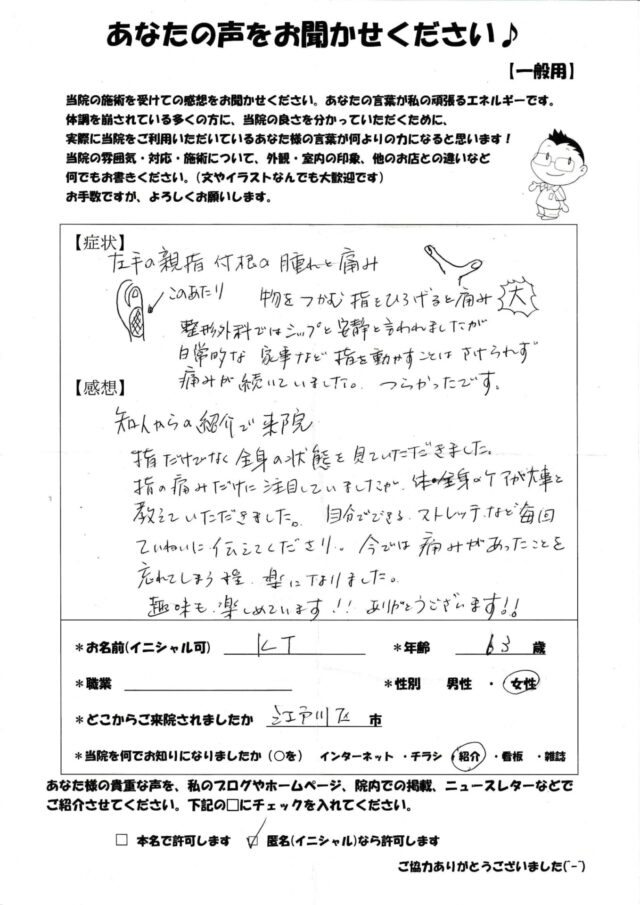 あなたの声をお聞かせください♪
【一般用】
当院の施術を受けての感想をお聞かせください。あなたの言葉が私の頑張るエネルギーです。
体調を崩されている多くの方に、当院の良さを分かっていただくために、
実際に当院をご利用いただいているあなた様の言葉が何よりの力になると思います！
当院の雰囲気・対応・施術について、外観・室内の印象、他のお店との違いなど
何でもお書きください。（文やイラストなんでも大歓迎です）
お手数ですが、よろしくお願いします。
【症状】
左手の親指 付根の 腫れと痛み
このあたり
物をつかむ 指をひろげると痛み 大
整形外科ではシップと安静と言われましたが
日常的な 家事など 指を動かすことは さけられず
痛みが続いていました。 つらかったです。
【感想】
知人からの紹介で来院
指だけでなく全身の状態を見ていただきました。
指の痛みだけに注目していましたが、体・全身のケアが大事と
教えていただきました。 自分でできる ストレッチなど毎回
ていねいに伝えてくださり。 今では 痛みがあったことを
忘れてしまう程、楽になりました。
趣味も、楽しめています！！ ありがとうございます！！
＊お名前(イニシャル可) KT ＊年齢 63 歳
＊職業 ＊性別 男性 ・ 女性
＊どこからご来院されましたか 江戸川区 市
＊当院を何でお知りになりましたか（○を） インターネット ・チラシ ・紹介 ・看板 ・雑誌
あなた様の貴重な声を、私のブログやホームページ、院内での掲載、ニュースレターなどで
ご紹介させてください。下記の□にチェックを入れてください。
□ 本名で許可します ☑ 匿名(イニシャル)なら許可します
ご協力ありがとうございました(^-^)